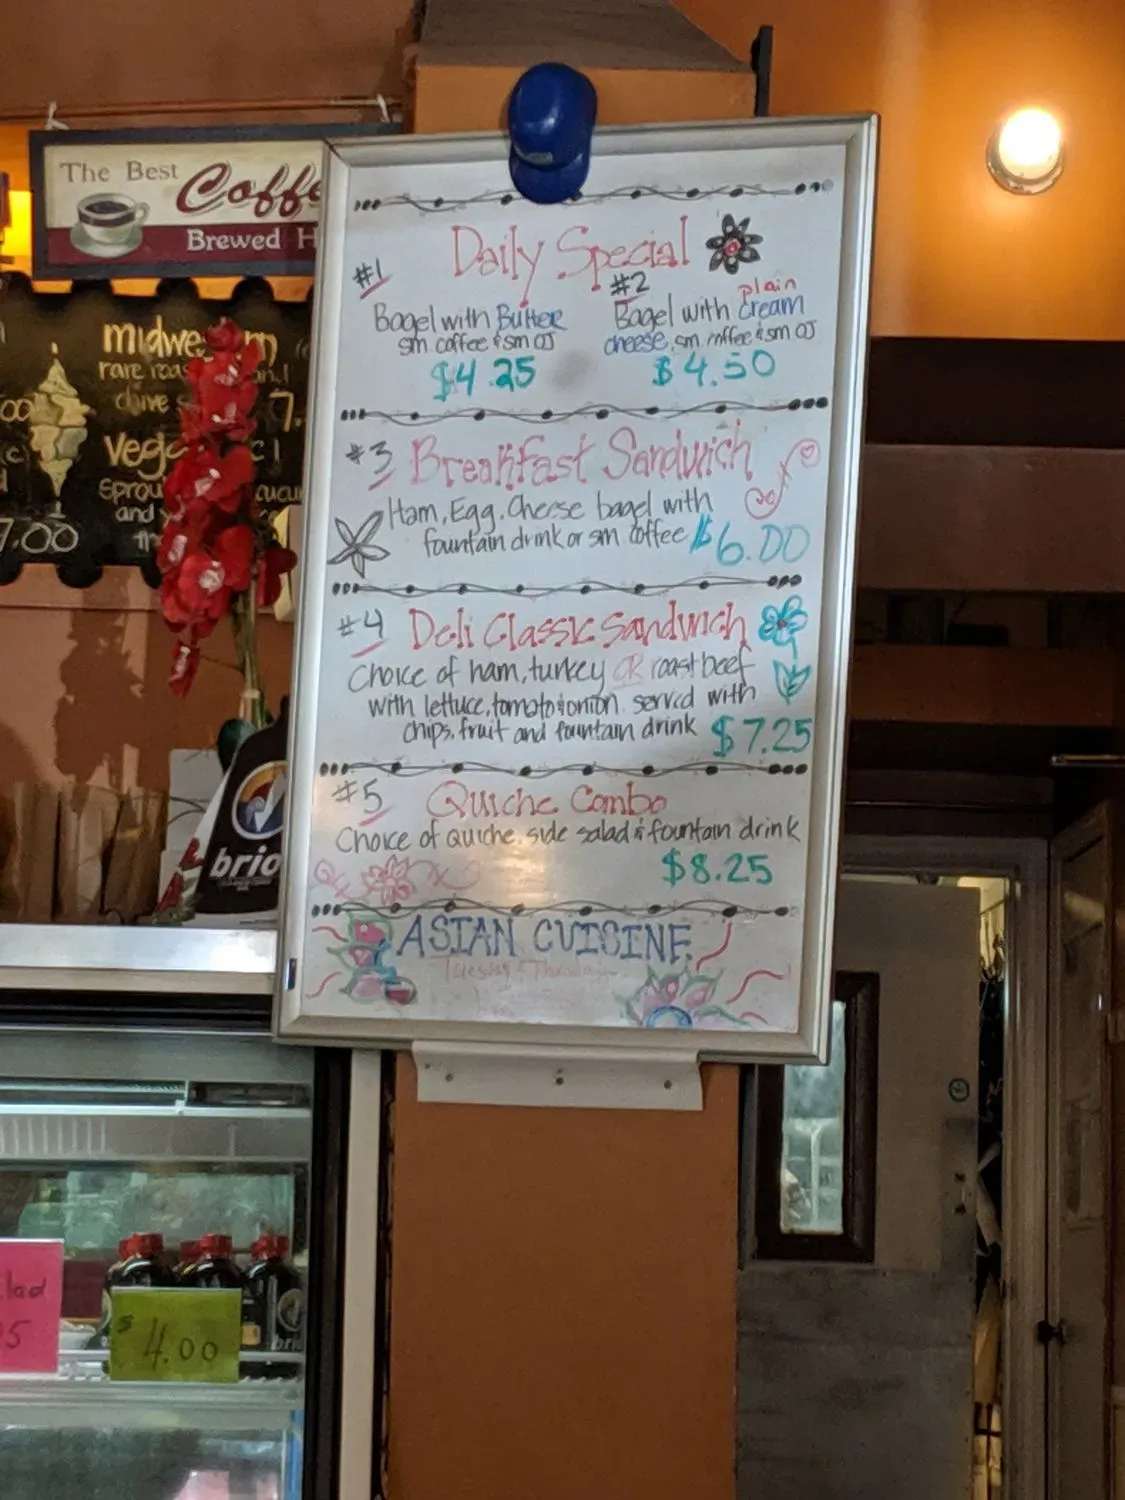 The Best
Coffe
Brewed H
midwe rn
rare roas
chive
7.
Vega
Sprou cucu
and
7.00
brio
Daily Special
#1
Bagel with Butter
sm. coffee & sm OJ
$4.25
#2
plain
Bagel with cream
cheese, sm. coffee & sm OJ
$4.50
#3 Breakfast Sandwich
Ham, Egg, Cheese bagel with
fountain drink or sm coffee $6.00
#4 Deli Classic Sandwich
Choice of ham, turkey OR roast beef
with lettuce, tomato & onion. served with
chips, fruit and fountain drink $7.25
#5 Quiche Combo
Choice of Quiche, side salad & fountain drink
$8.25
ASIAN CUISINE
Tuesday & Thursday
lad
5
$4.00